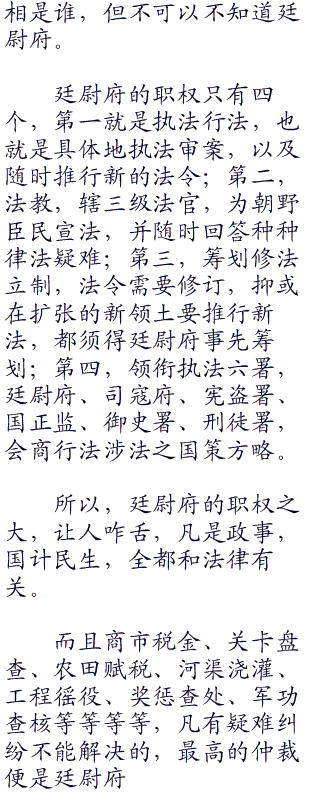 相是谁，但不可以不知道廷
尉府。
廷尉府的职权只有四
个，第一就是执法行法，也
就是具体地执法审案，以及
随时推行新的法令；第二，
法教，辖三级法官，为朝野
臣民宣法，并随时回答种种
律法疑难；第三，筹划修法
立制，法令需要修订，抑或
在扩张的新领土要推行新
法，都须得廷尉府事先筹
划；第四，领衔执法六署，
廷尉府、司寇府、宪盗署、
国正监、御史署、刑徒署，
会商行法涉法之国策方略。
所以，廷尉府的职权之
大，让人咋舌，凡是政事，
国计民生，全都和法律有
关。
而且商市税金、关卡盘
查、农田赋税、河渠浇灌、
工程徭役、奖惩查处、军功
查核等等等等，凡有疑难纠
纷不能解决的，最高的仲裁
便是廷尉府